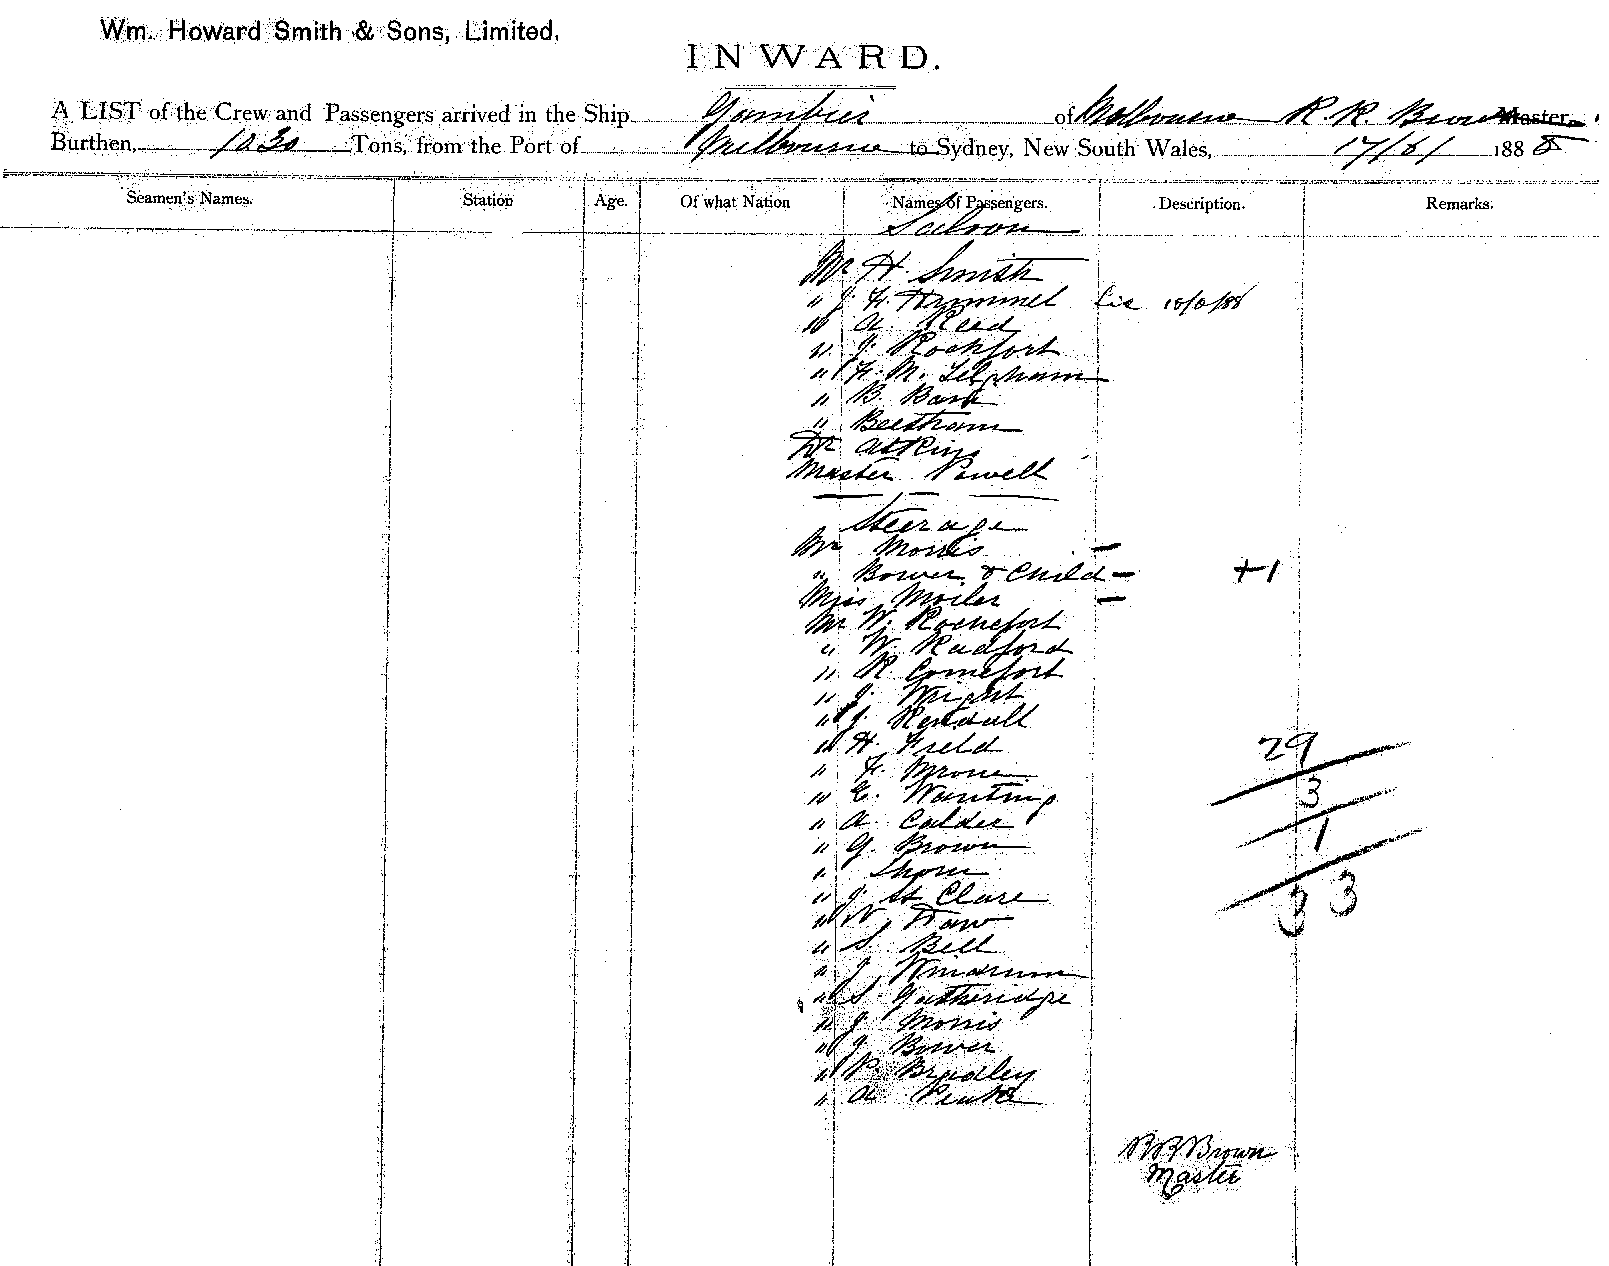 Wm. Howard Smith & Sons, Limited.
INWARD.
A LIST of the Crew and Passengers arrived in the Ship Gambier of Melbourne R. R. Brown Master
Burthen, 1030 Tons, from the Port of Melbourne to Sydney, New South Wales, 17/ / 188
Seamen's Names. Station Age. Of what Nation Names of Passengers. Description. Remarks.
Saloon
Mr H. Smith
" J. F.
" A. Reed
" J. Rockfort
" F. M.
" B.
" Beetham
Dr Atkins
Master Powell
Steerage
Mr Morris
" Bower & Child +1
Miss
Mr W. Rochefort
" W. Radford
" R. Comefort
" J. Wright
" J. Kendall
" H. Field
29
" F. Mrone
3
" E. Wanting
" A. Calder
1
" G. Brown
"
" J. St Clare
33
" W. Daw
" S. Bell
" J. Windrum
" S. Gutheridge
" J. Morris
" J. Bower
" P. Bradley
" A.
R R Brown
Master